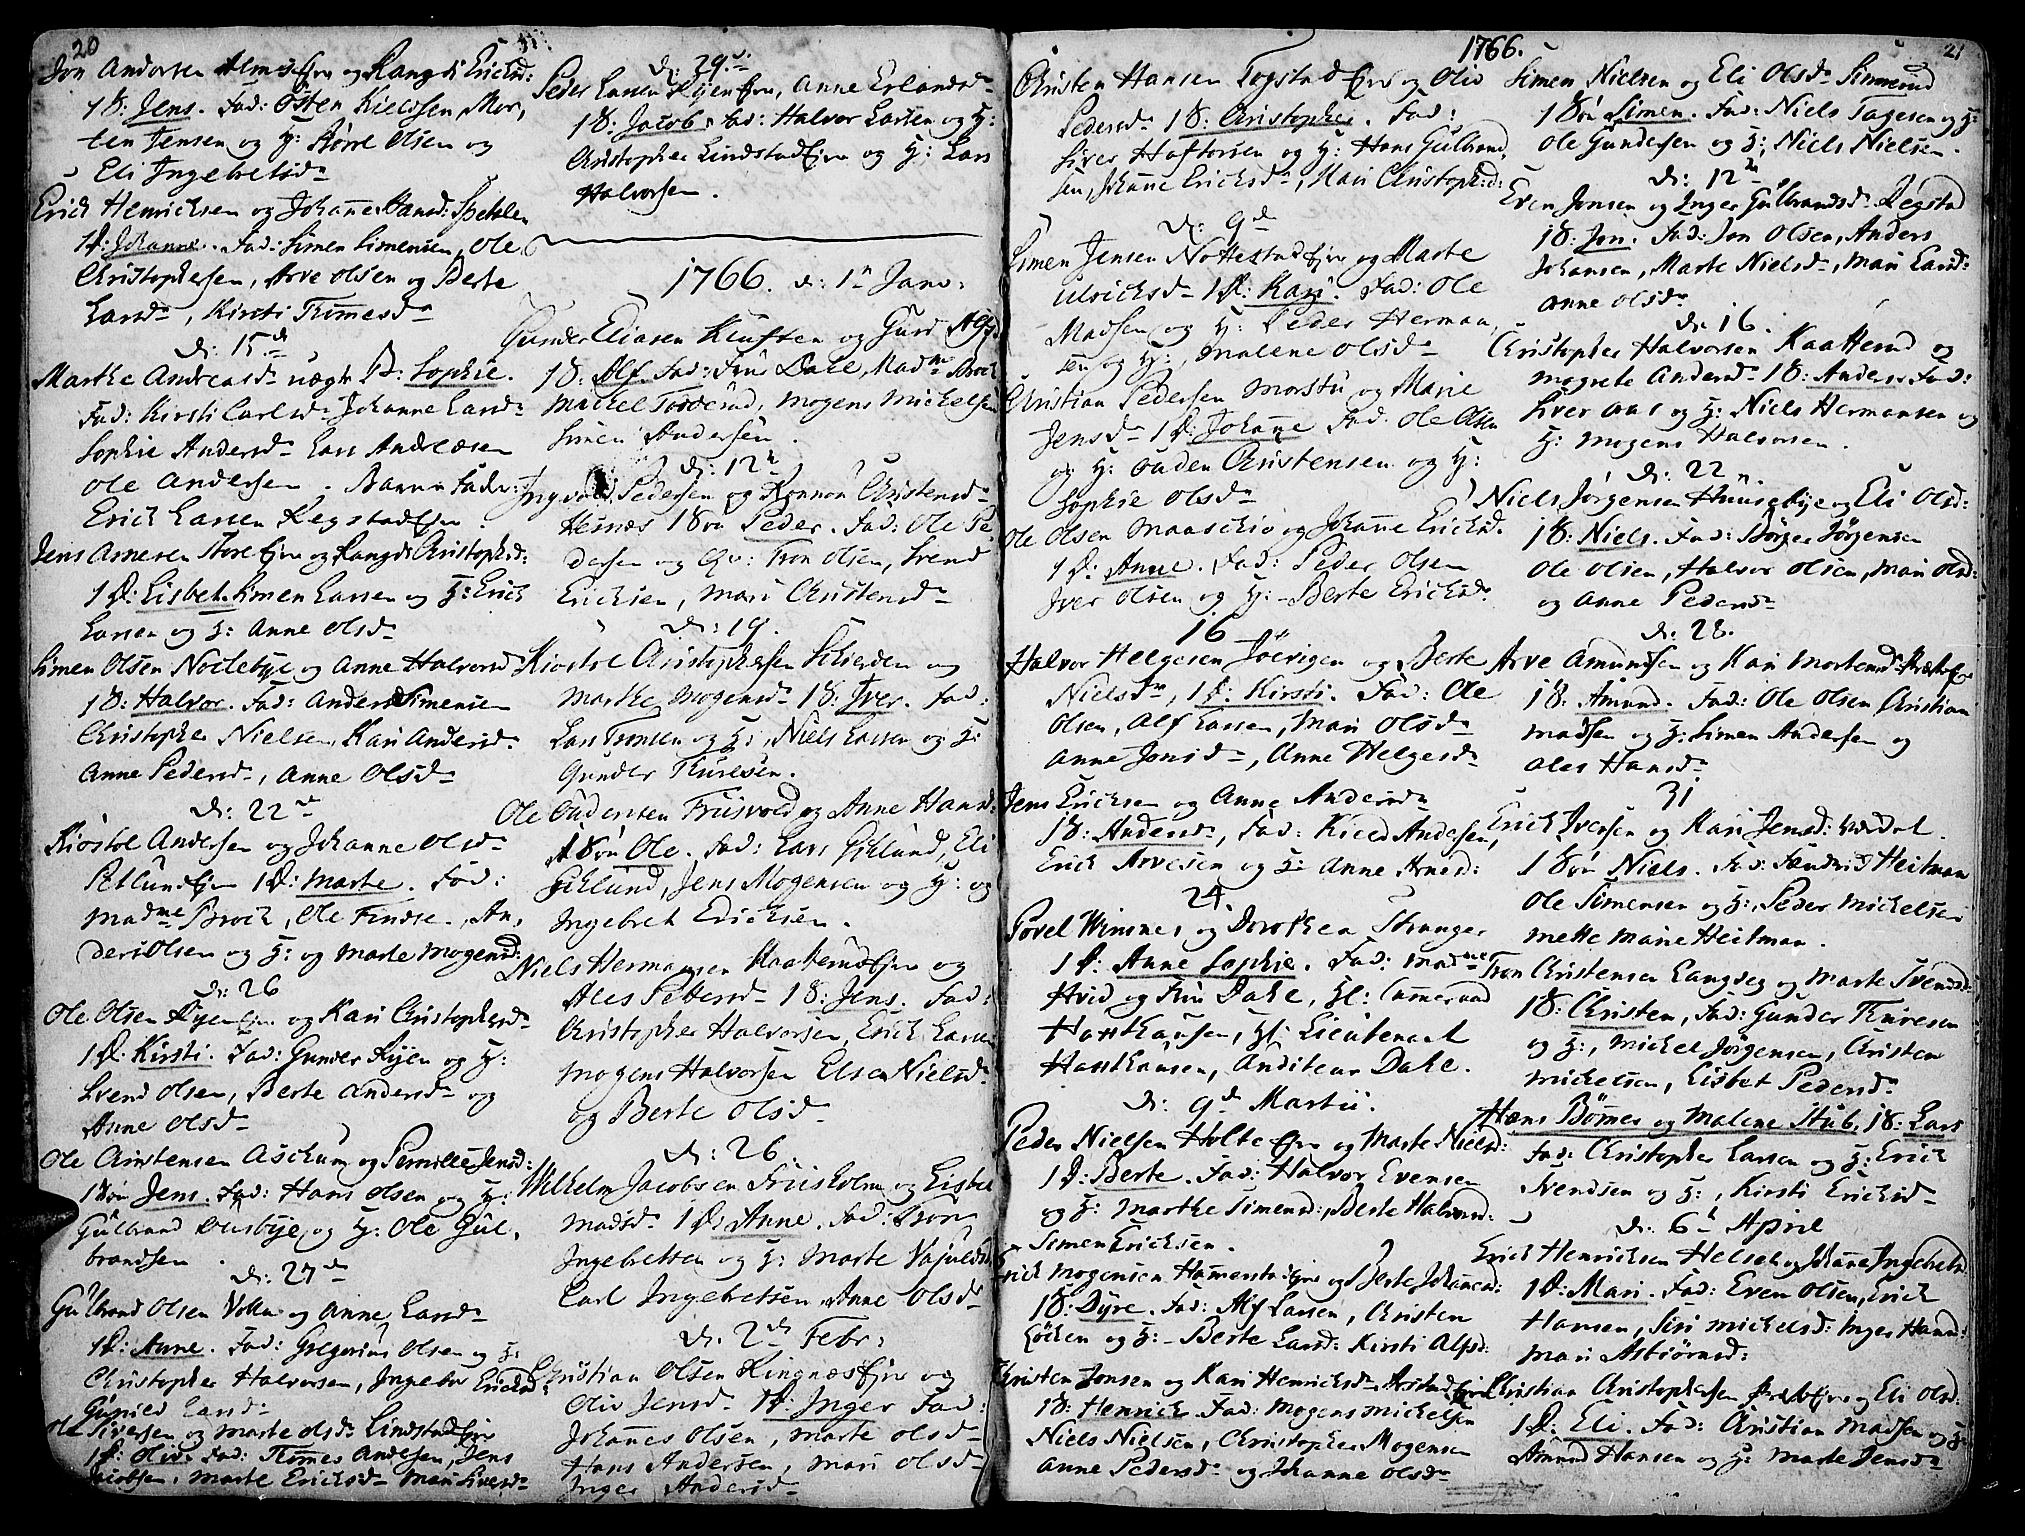 20
Jon Andersen Almseje og Rangdi Ericksd:
1 S: Jens. Fad: Østen Kieldsen, Mor,
ten Jensen og H: Større Olsen og
Eli Ingebretsd.
Erick Henricksen og Johanne Hansd: Spetalen
1 D: Johanne. Fad: Simen Simensen, Ole
Christophersen, Arve Olsen og Berte
Larsd., Kirsti Thomesd.
d: 15.
Marthe Andreasd. uægte D: Sophie.
Fad: Kirsti Carlsd. Johanne Larsd.
Sophie Andersd. Lars Andreæsen
Ole Andersen. Barne Fader:
Erick Larsen Regstadeje.
Jens Arnesen Storeeje og Rangdi Christophd:
1 D: Lisbet. Simen Larsen og H: Erick
Larsen og H: Anne Olsd.
Simen Olsen Noclebye og Anne Halvorsd.
1 S: Halvor. Fad: Anders Simensen
Christopher Nielsen, Kari Andersd.
Anne Pedersd., Anne Olsd.
d: 22
Kiøstol Andersen og Johanne Olsd.
Petlundeje 1 D: Marte. Fad:
Madme Brock, Ole Findse, An,
ders Olsen og H: og Marte Mogensd:
d: 26
Ole Olsen Ryeneje og Kari Christophersd.
1 D: Kirsti. Fad: Gunder Ryen og H:
Svend Olsen, Berte Andersd. og
Anne Olsd.
Ole Christensen Aschum og Pernille Jensd:
1 Søn Jens. Fad: Hans Olsen og H:
Gulbrand Dusbye og H: Ole Gul,
brandsen.
d: 27
Gulbrand Olsen Volla og Anne Larsd.
1 D: Anne. Fad: Gregorius Olsen og H:
Christopher Halvorsen, Ingebr Ericksd.
Gunild Larsd.
Ole Siversen og Marte Olsd. Lindstadeje
1 D: Oliv. Fad: Thomes Andersen, Jens
Jacobsen, Marte Ericksd. Mari Siversd.
d: 29.
Peder Larsen Ryeneje, Anne Erlandsd.
1 S: Jacob. Fad: Halvor Larsen og H:
Christopher Lindstadeje og H: Lars
Halvorsen.
1766. d: 1 Janv:
Gunder Eliasen Kluften og Guro Alfsd.
1 S: Alf. Fad: Dahl, Madme Brock
Mickel Torderud, Mogens Mickelsen
Simen Andersen.
d: 12
Ingvold Pedersen og Rønnou Christensd.
Hesnæs 1 Søn Peder. Fad: Ole Pe
dersen og Qv: Tron Olsen, Svend
Ericksen, Mari Christensd.
d: 19.
Kiøstol Christophersen Schierden og
Marthe Mogensd. 1 S: Iver. Fad:
Lars Tronsen og H:, Niels Larsen og H:
Gunder Thuresen.
Ole Gudersen Frusvold og Anne Hansd.
1 Søn Ole. Fad: Lars Gihlund, Eli
Gihlund, Jens Mogensen og H: og
Ingebret Ericksen.
Niels Hermansen Kaatterudeje og
Ales Pettersd. 1 S: Jens. Fad:
Christopher Halvorsen, Erick Larsen
Mogens Halvorsen Elsen Nielsd.
og Berte Olsd.
d: 26.
Wilhelm Jacobsen Frusholm og Lisbet
Madsd. 1 D: Anne. Fad: Tron
Ingebretsen og H: Marte
Carl Ingebretsen Anne Olsd.
d: 2 Febr:
Christian Olsen Ringnæseje og
Oliv Jensd. 1 D: Inger Fad:
Johannes Olsen, Marte Olsd.
Hans Andersen, Mari Olsd.
Inger Andersd.
1766.
Christen Hansen Togstadeje og Oliv
Pedersd. 1 S: Christopher. Fad:
Siver Haftorsen og H: Hans Gulbrand,
sen, Johanne Ericksd., Mari Christophd:
d: 9
Simen Jensen Nottestadeje og Marte
Ulricksd. 1 D: Kari. Fad: Ole
Madsen og H: Peder Herman,
sen og H:, Malene Olsd.
Christian Pedersen Morstu og Marie
Jensd. 1 D: Johanne Fad: Ole Olsen
og H: Ouden Christensen og H:
Sophie Olsd.
Ole Olsen Maaschio og Johanne Ericksd.
1 D: Anne. Fad: Peder Olsen
Iver Olsen og H: Berte Ericksd.
16
Halvor Helgesen Jøevigen og Berte
Nielsd., 1 D: Kirsti. Fad: Ole
Olsen, Alf Larsen, Mari Olsd.
Anne Jonsd., Anne Helgesd.
Jens Ericksen og Anne Andersd.
1 S: Anders., Fad: Kield Andersen,
Erick Arvesen og H: Anne Arnesd:
24.
Povel Wimmer og Dorothea Stranger
1 D: Anne Sophie. Fad: Madme
Hvid og Dahl, Hl: Cammeraad
Housthausen, Hl: Lieutenant
Housthausen, Auditeur Dahl.
d: 9 Martii.
Peder Nielsen Holteeje og Marte Nielsd:
1 D: Berte. Fad: Halvor Evensen
og H: Marthe Simensd:, Berte Halvorsd:
Simen Ericksen.
Erick Mogensen Hammerstadeje og Berte Johansd:
1 S: Dyre. Fad: Alf Larsen, Christen
Løcken og H: Berte Larsd: Kirsti Alfsd:
Christen Jonsen og Kari Henricksd. Arstadeje
1 S: Henrick. Fad: Mogens Mickelsen
Niels Nielsen, Christopher Mogensen
Anne Pedersd. og Johanne Olsd.
21
Simen Nielsen og Eli Olsd. Simmerud
1 Søn Simen. Fad: Niels Tagesen og H:
Ole Gundersen og H:, Niels Nielsen.
d: 12
Even Jonsen og Inger Gulbrandsd. Regstad
1 S: Jon. Fad: Jon Olsen, Anders
Johansen, Marte Nielsd., Mari Larsd.
Anne Olsd.
d: 16.
Christopher Halvorsen Kaatterud og
Mogrete Andersd. 1 S: Anders Fad:
Siver Aas og H: Niels Hermansen og
H: Mogens Halvorsen.
d: 22
Niels Jørgensen Huusebye og Eli Olsd:
1 S: Niels. Fad: Børger Jørgensen
Ole Olsen, Halvor Olsen, Mari Olsd:
og Anne Pedersd.
d: 28.
Arve Amundsen og Kari Mortensd.
1 S: Amund. Fad: Ole Olsen, Christian
Madsen og H: Simen Andersen og
Ales Hansd.
31
Erick Iversen og Kari Jensd:
1 Søn Niels. Fad: Fændrick Heitman
Ole Simensen og H:, Peder Mickelsen
Mette Marie Heitman.
Tron Christensen Langseg og Marte Svensd:
1 S: Christen, Fad: Gunder Thuresen
og H:, Mickel Jørgensen, Christen
Mickelsen, Lisbet Pedersd.
Hans Bømer og Malene Stub. 1 S: Lars
Fad: Christopher Larsen og H: Erick
Svendsen og H:, Kirsti Ericksd.
d: 6 Apriil
Erick Henricksen Helset og Johanne Ingebretsd.
1 D: Mari. Fad: Even Olsen, Erick
Hansen, Siri Mickelsd: Inger Hansd:
Mari Asbiørnsd:
Christian Christophersen og Eli Olsd:
1 D: Eli. Fad: Christian Madsen og H:
Amund Hansen og H: Marte Jensd.